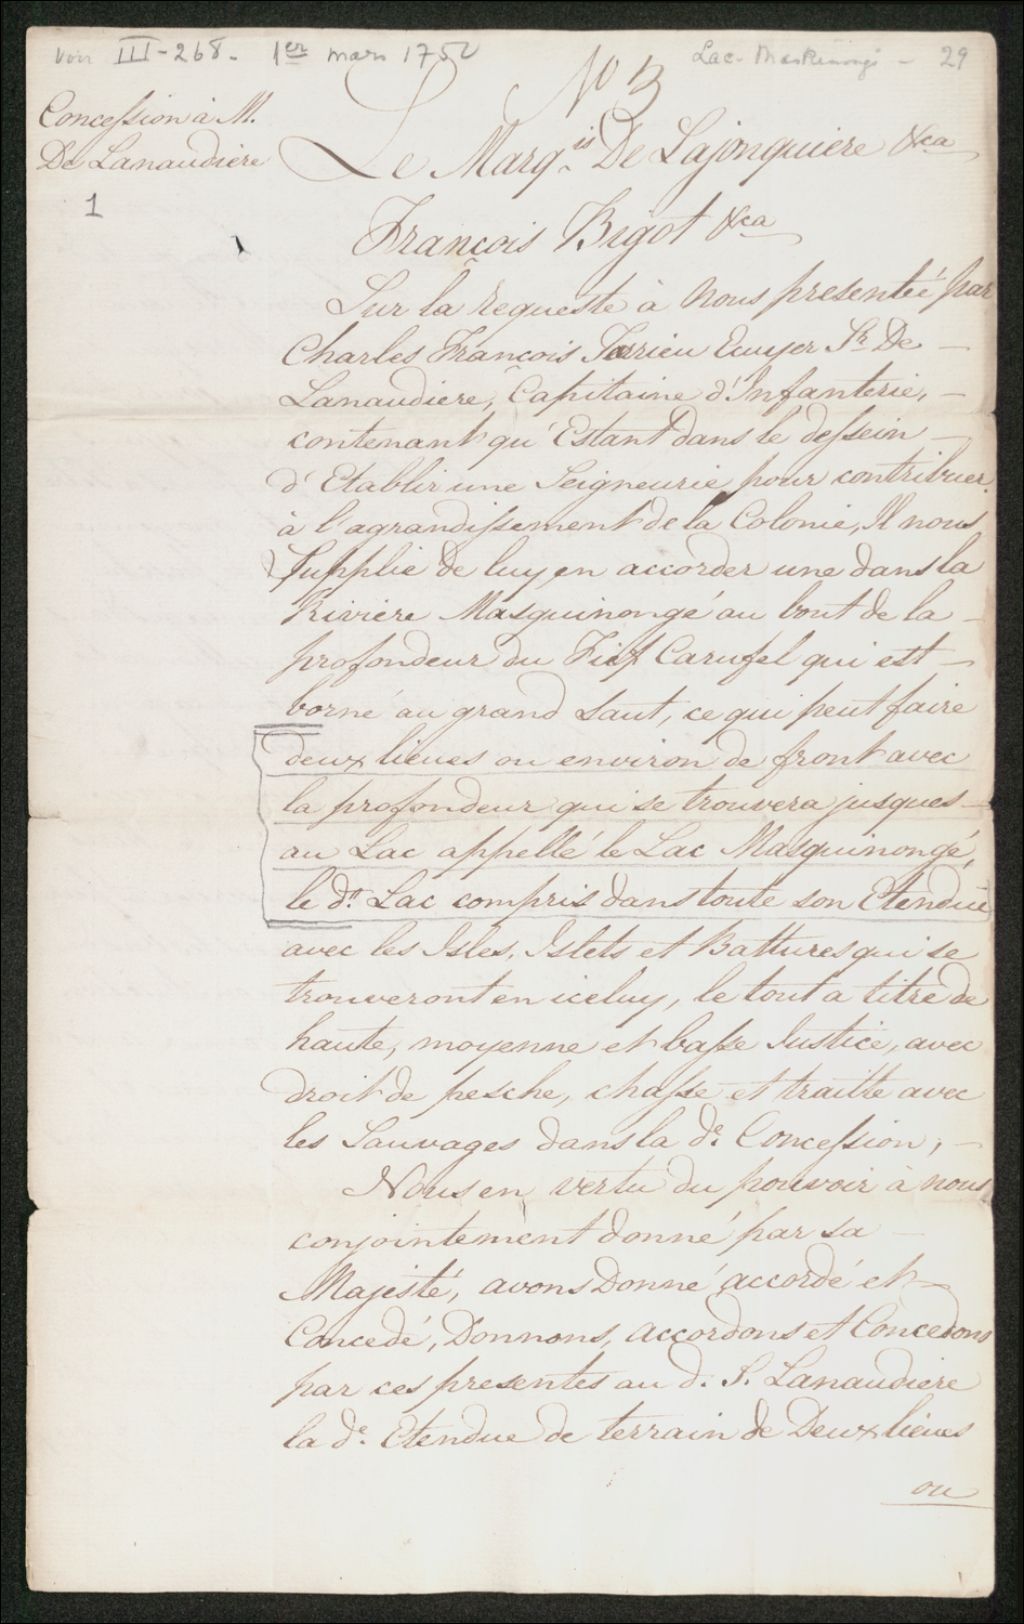 Voir III-268. 1er mars 1750
Lac Maskinongé - 29
No 3
Concession à M.
De Lanaudière
1
Le Marqis De Lajonquiere &ca
François Bigot &ca
Sur la requeste à nous presentée par
Charles François Tarrieu Ecuyer Sr. De
Lanaudiere, Capitaine d'Infanterie,
contenant qu'Estant dans le dessein
d'Etablir une Seigneurie pour contribuer
à l'agrandissement de la Colonie, Il nous
Supplie de luy en accorder une dans la
Riviere Masquinongé au bout de la
profondeur du Fief Carufel qui est
borné au grand Saut, ce qui peut faire
deux lieues ou environ de front avec
la profondeur qui se trouvera jusques
au Lac appellé le Lac Masquinongé,
le dt. Lac compris dans toute son Etendue
avec les Isles, Islets et Battures qui se
trouveront en iceluy, le tout a titre de
haute, moyenne et basse Justice, avec
droit de pesche, chasse et traitte avec
les Sauvages dans la de. Concession,
Nous en vertu du pouvoir à nous
conjointement donné par sa
Majesté, avons Donné accordé et
Concedé, Donnons, accordons et Concedons
par ces presentes au d. S. Lanaudiere
la de. Etendue de terrain de Deux lieues
ou